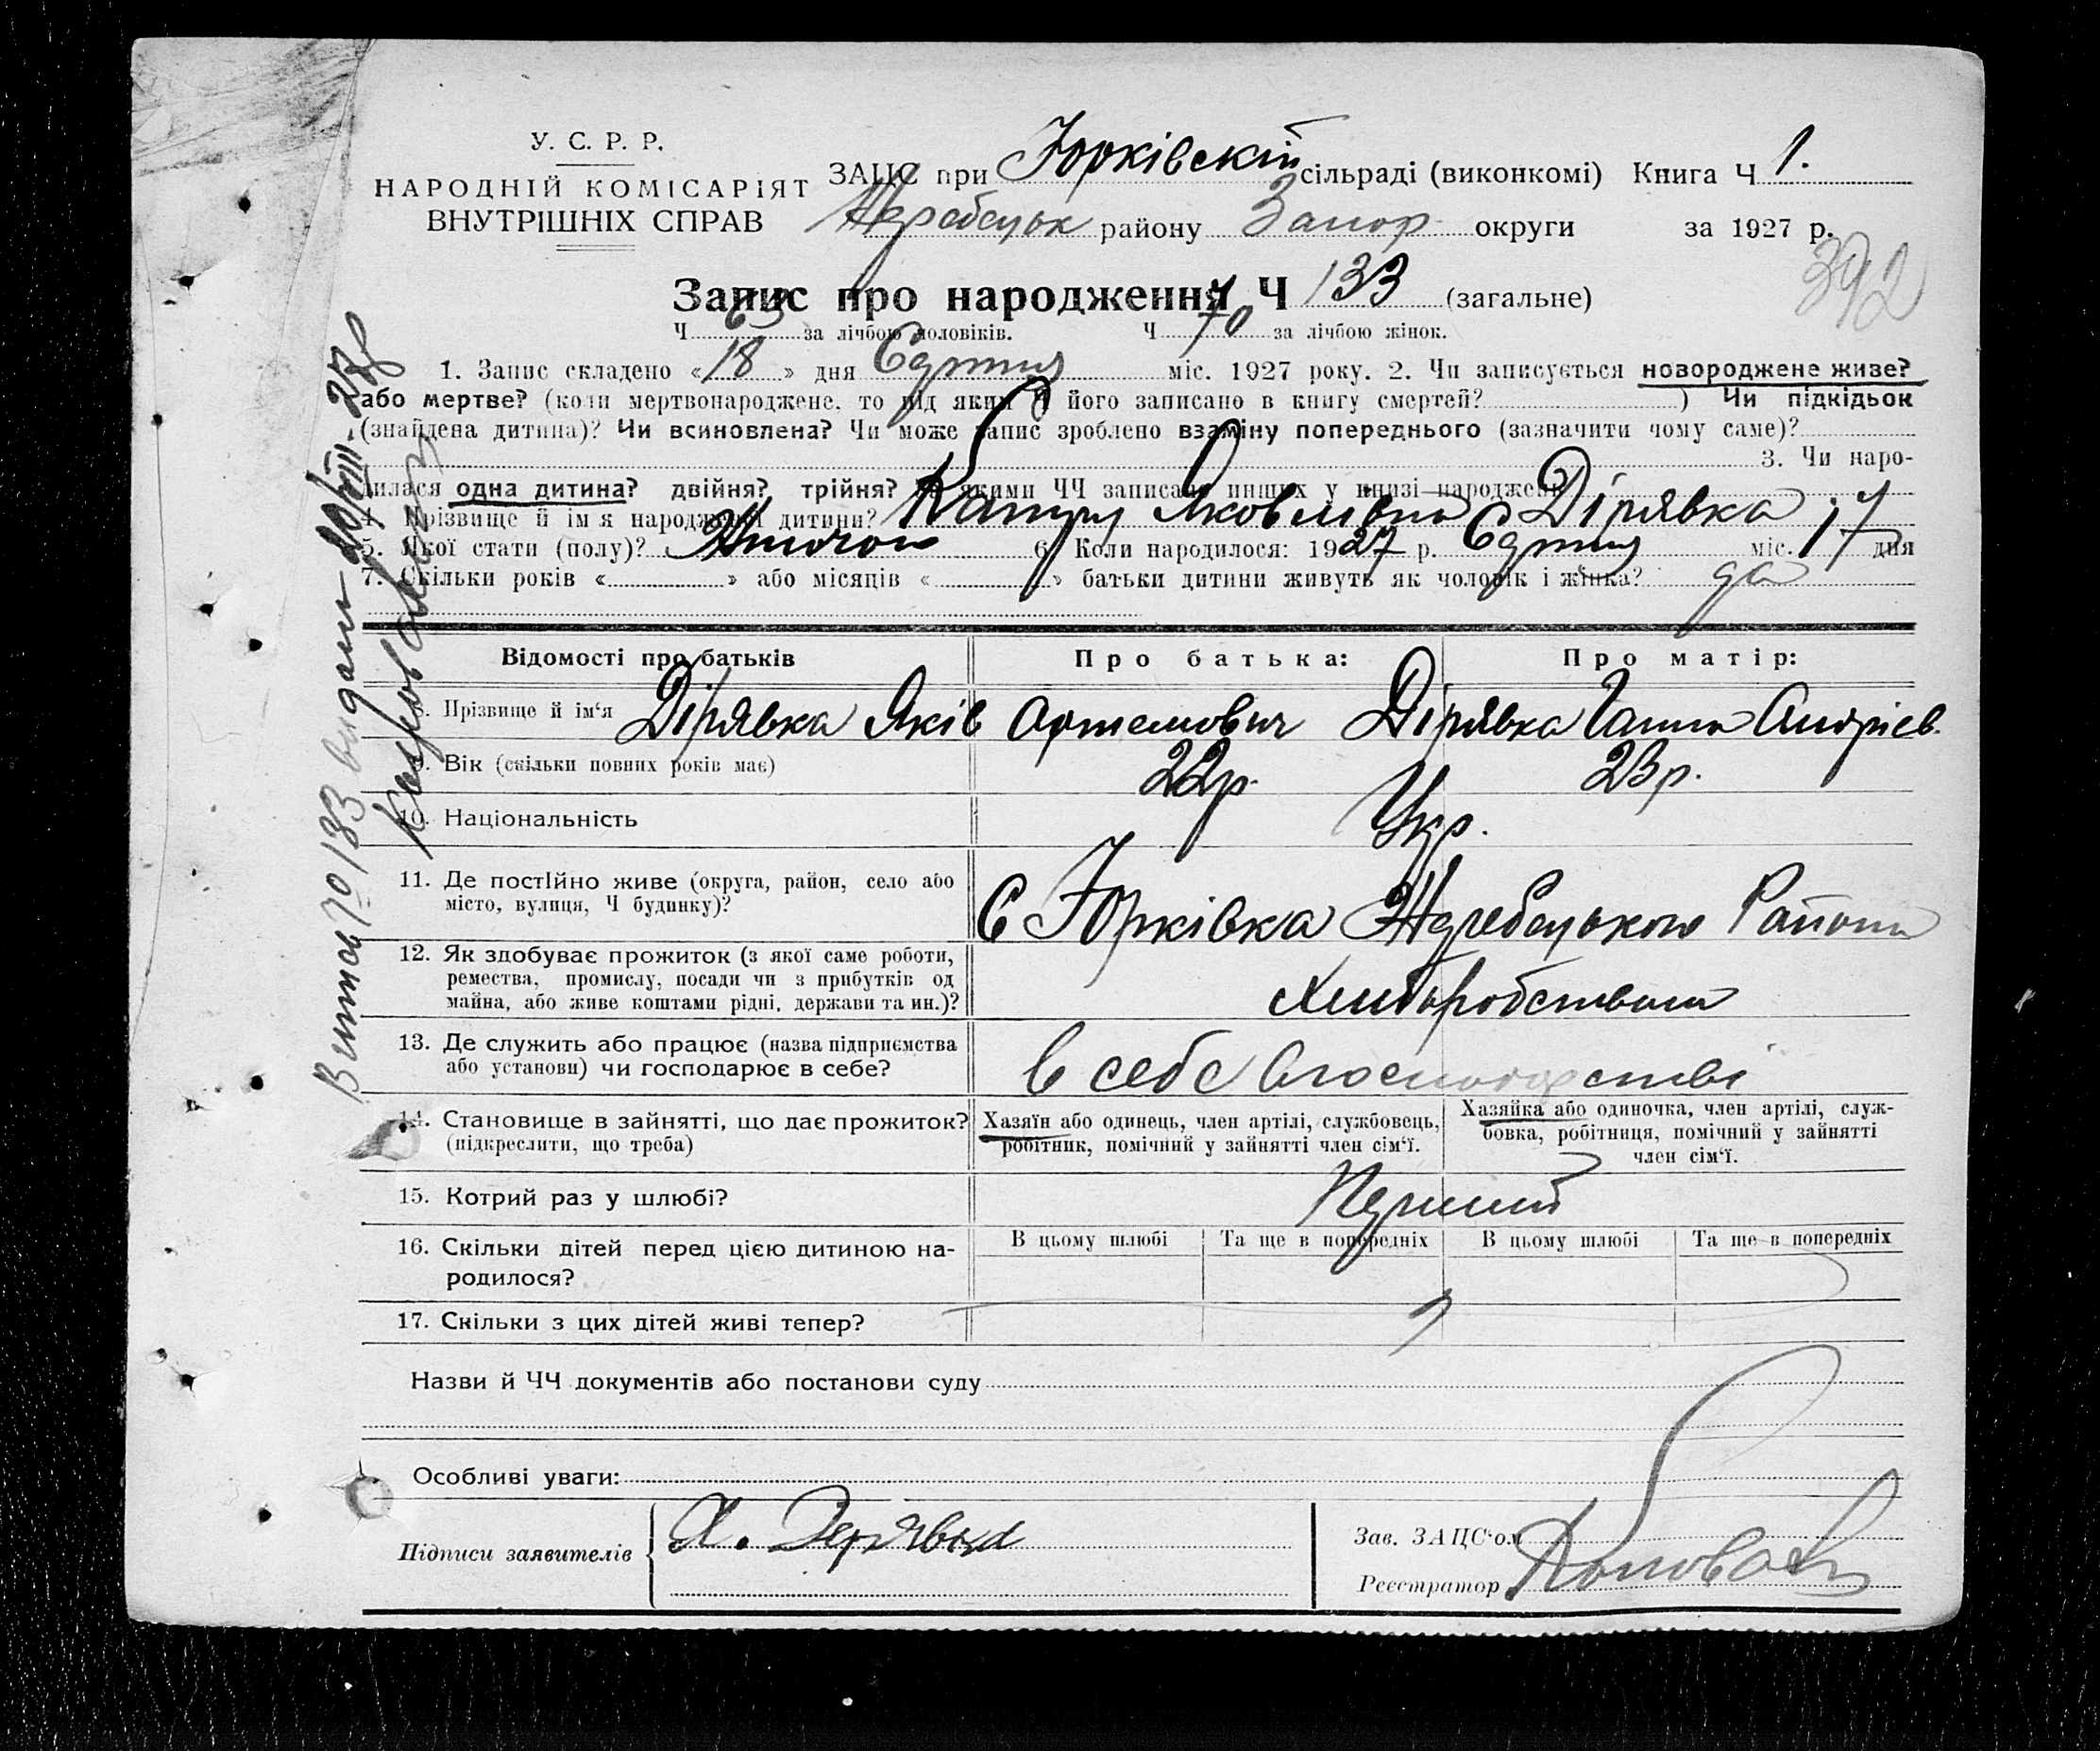 У. С. Р. Р.
НАРОДНІЙ КОМІСАРІЯТ
ВНУТРІШНІХ СПРАВ
ЗАЦС при Юрківській сільраді (виконкомі) Книга Ч 1.
Жеребецьк району Запор округи за 1927 р.
392
Запис про народження Ч 133 (загальне)
Ч 63 за лічбою чоловіків. Ч 70 за лічбою жінок.
1. Запис складено «18» дня Серпня міс. 1927 року. 2. Чи записується новороджене живе?
або мертве? (коли мертвонароджене, то під яким Ч його записано в книгу смертей? ) Чи підкідьок
(знайдена дитина)? Чи всиновлена? Чи може запис зроблено взаміну попереднього (зазначити чому саме)?
3. Чи наро-
дилася одна дитина? двійня? трійня? якими ЧЧ записано инших у книзі народжень
4. Прізвище й ім'я народженої дитини? Яковлівна Дірявка 17
5. Якої стати (полу)? Жіночої 6. Коли народилося: 1927 р. Серпня міс. 17 дня
7. Скільки років « » або місяців « » батьки дитини живуть як чоловік і жінка? да
Відомості про батьків Про батька: Про матір:
8. Прізвище й ім'я Дірявка Яків Артемович Дірявка Ганна Андрієв.
9. Вік (скільки повних років має) 22р. 23р.
10. Національність Укр.
11. Де постійно живе (округа, район, село або
місто, вулиця, Ч будинку)?
С Юрківка Жеребецького Району
12. Як здобуває прожиток (з якої саме роботи,
ремества, промислу, посади чи з прибутків од
майна, або живе коштами рідні, держави та ин.)?
Хліборобством
13. Де служить або працює (назва підприємства
або установи) чи господарює в себе?
в себе в господарстві
14. Становище в зайнятті, що дає прожиток?
(підкреслити, що треба)
Хазяїн або одинець, член артілі, службовець,
робітник, помічний у зайнятті член сім'ї.
Хазяйка або одиночка, член артілі, служ-
бовка, робітниця, помічний у зайнятті
член сім'ї.
15. Котрий раз у шлюбі? Перший
16. Скільки дітей перед цією дитиною на-
родилося?
В цьому шлюбі Та ще в попередніх В цьому шлюбі Та ще в попередніх
17. Скільки з цих дітей живі тепер?
Назви й ЧЧ документів або постанови суду
Особливі уваги:
Підписи заявителів Я. Дерявка
Зав. ЗАЦС'ом
Реєстратор